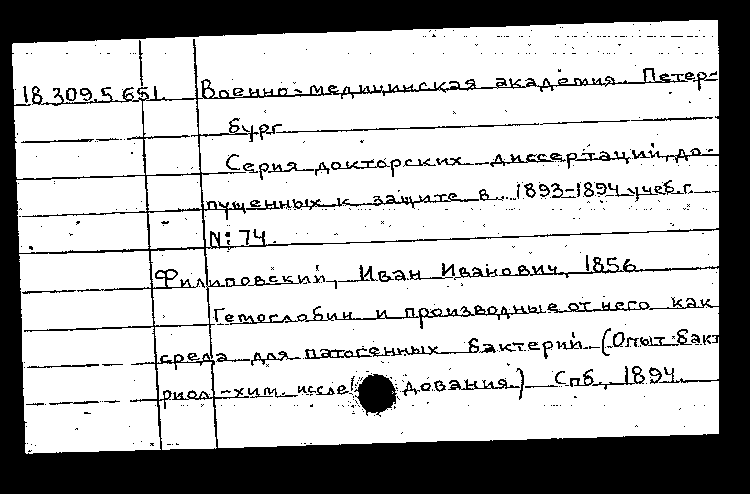 18.309.5.651. Военно-медицинская академия. Петер-
бург
Серия докторских диссертаций, до-
пущенных к защите в 1893-1894 учеб.г.
№: 74.
Филиповский, Иван Иванович, 1856
Гемоглобин и производные от него как
среда для патогенных бактерий. (Опыт бакт
риол.-хим. исследования.) Спб., 1894.